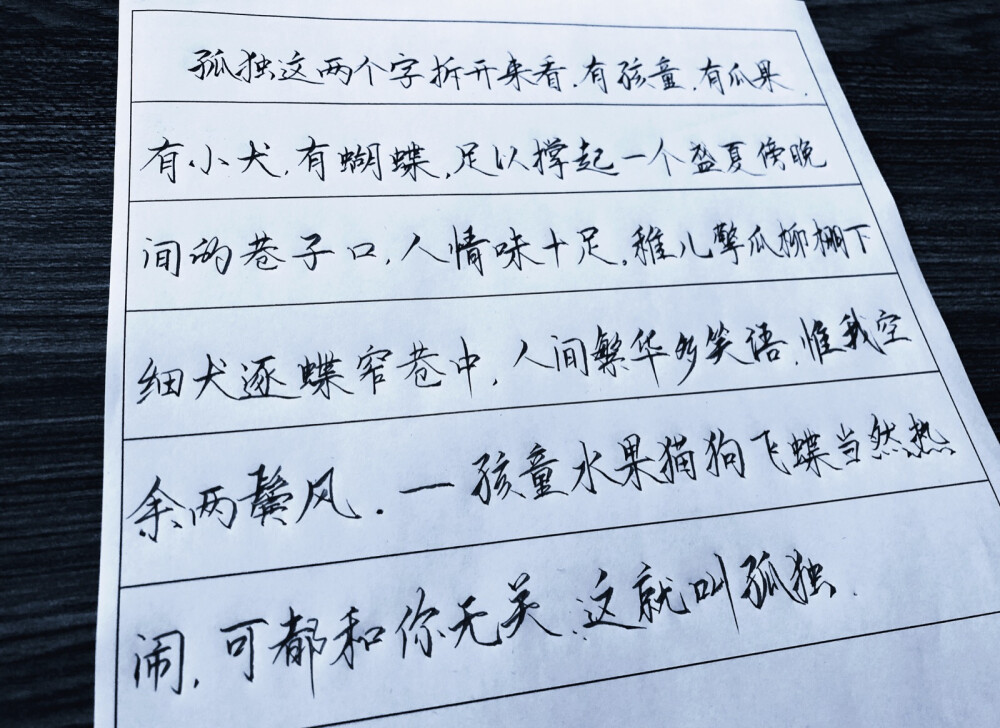 孤独这两个字拆开来看.有孩童.有瓜果.
有小犬.有蝴蝶.足以撑起一个盛夏傍晚
间的巷子口,人情味十足.稚儿擎瓜柳棚下
细犬逐蝶窄巷中,人间繁华多笑语.惟我空
余两鬓风.一孩童水果猫狗飞蝶当然热
闹,可都和你无关.这就叫孤独.